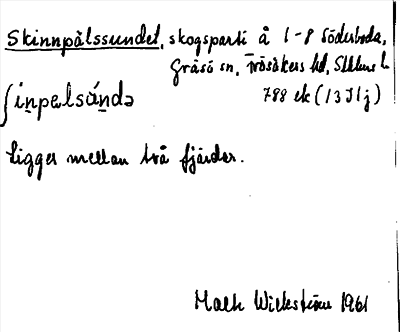 Skinnpålssundet, skogsparti å 1-8 Söderboda,
Gräsö sn, Frösåkers hd, Sthlms l.
ʃin̥pelsún̥də 788 ek (13 I 1 j)
Ligger mellan två fjärdar.
Wickström 1961